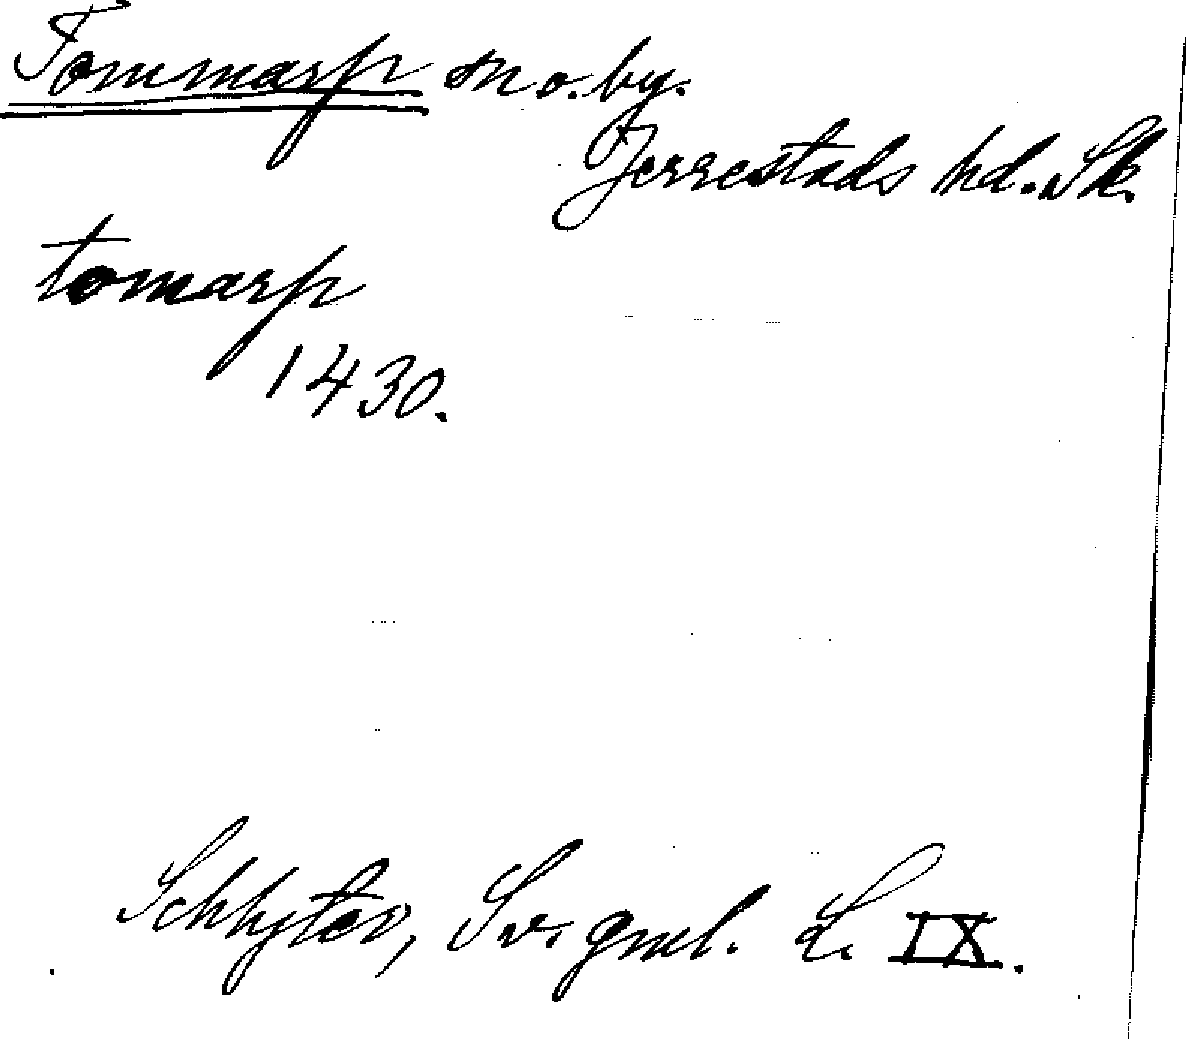 Tommarp sn o. by.
Jerrestads hd. Sk.
tomarp
1430.
Schlyter, Sv. gml. L. IX.